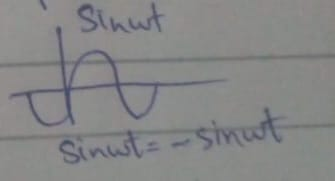 sinwt
sinwt = -sinwt